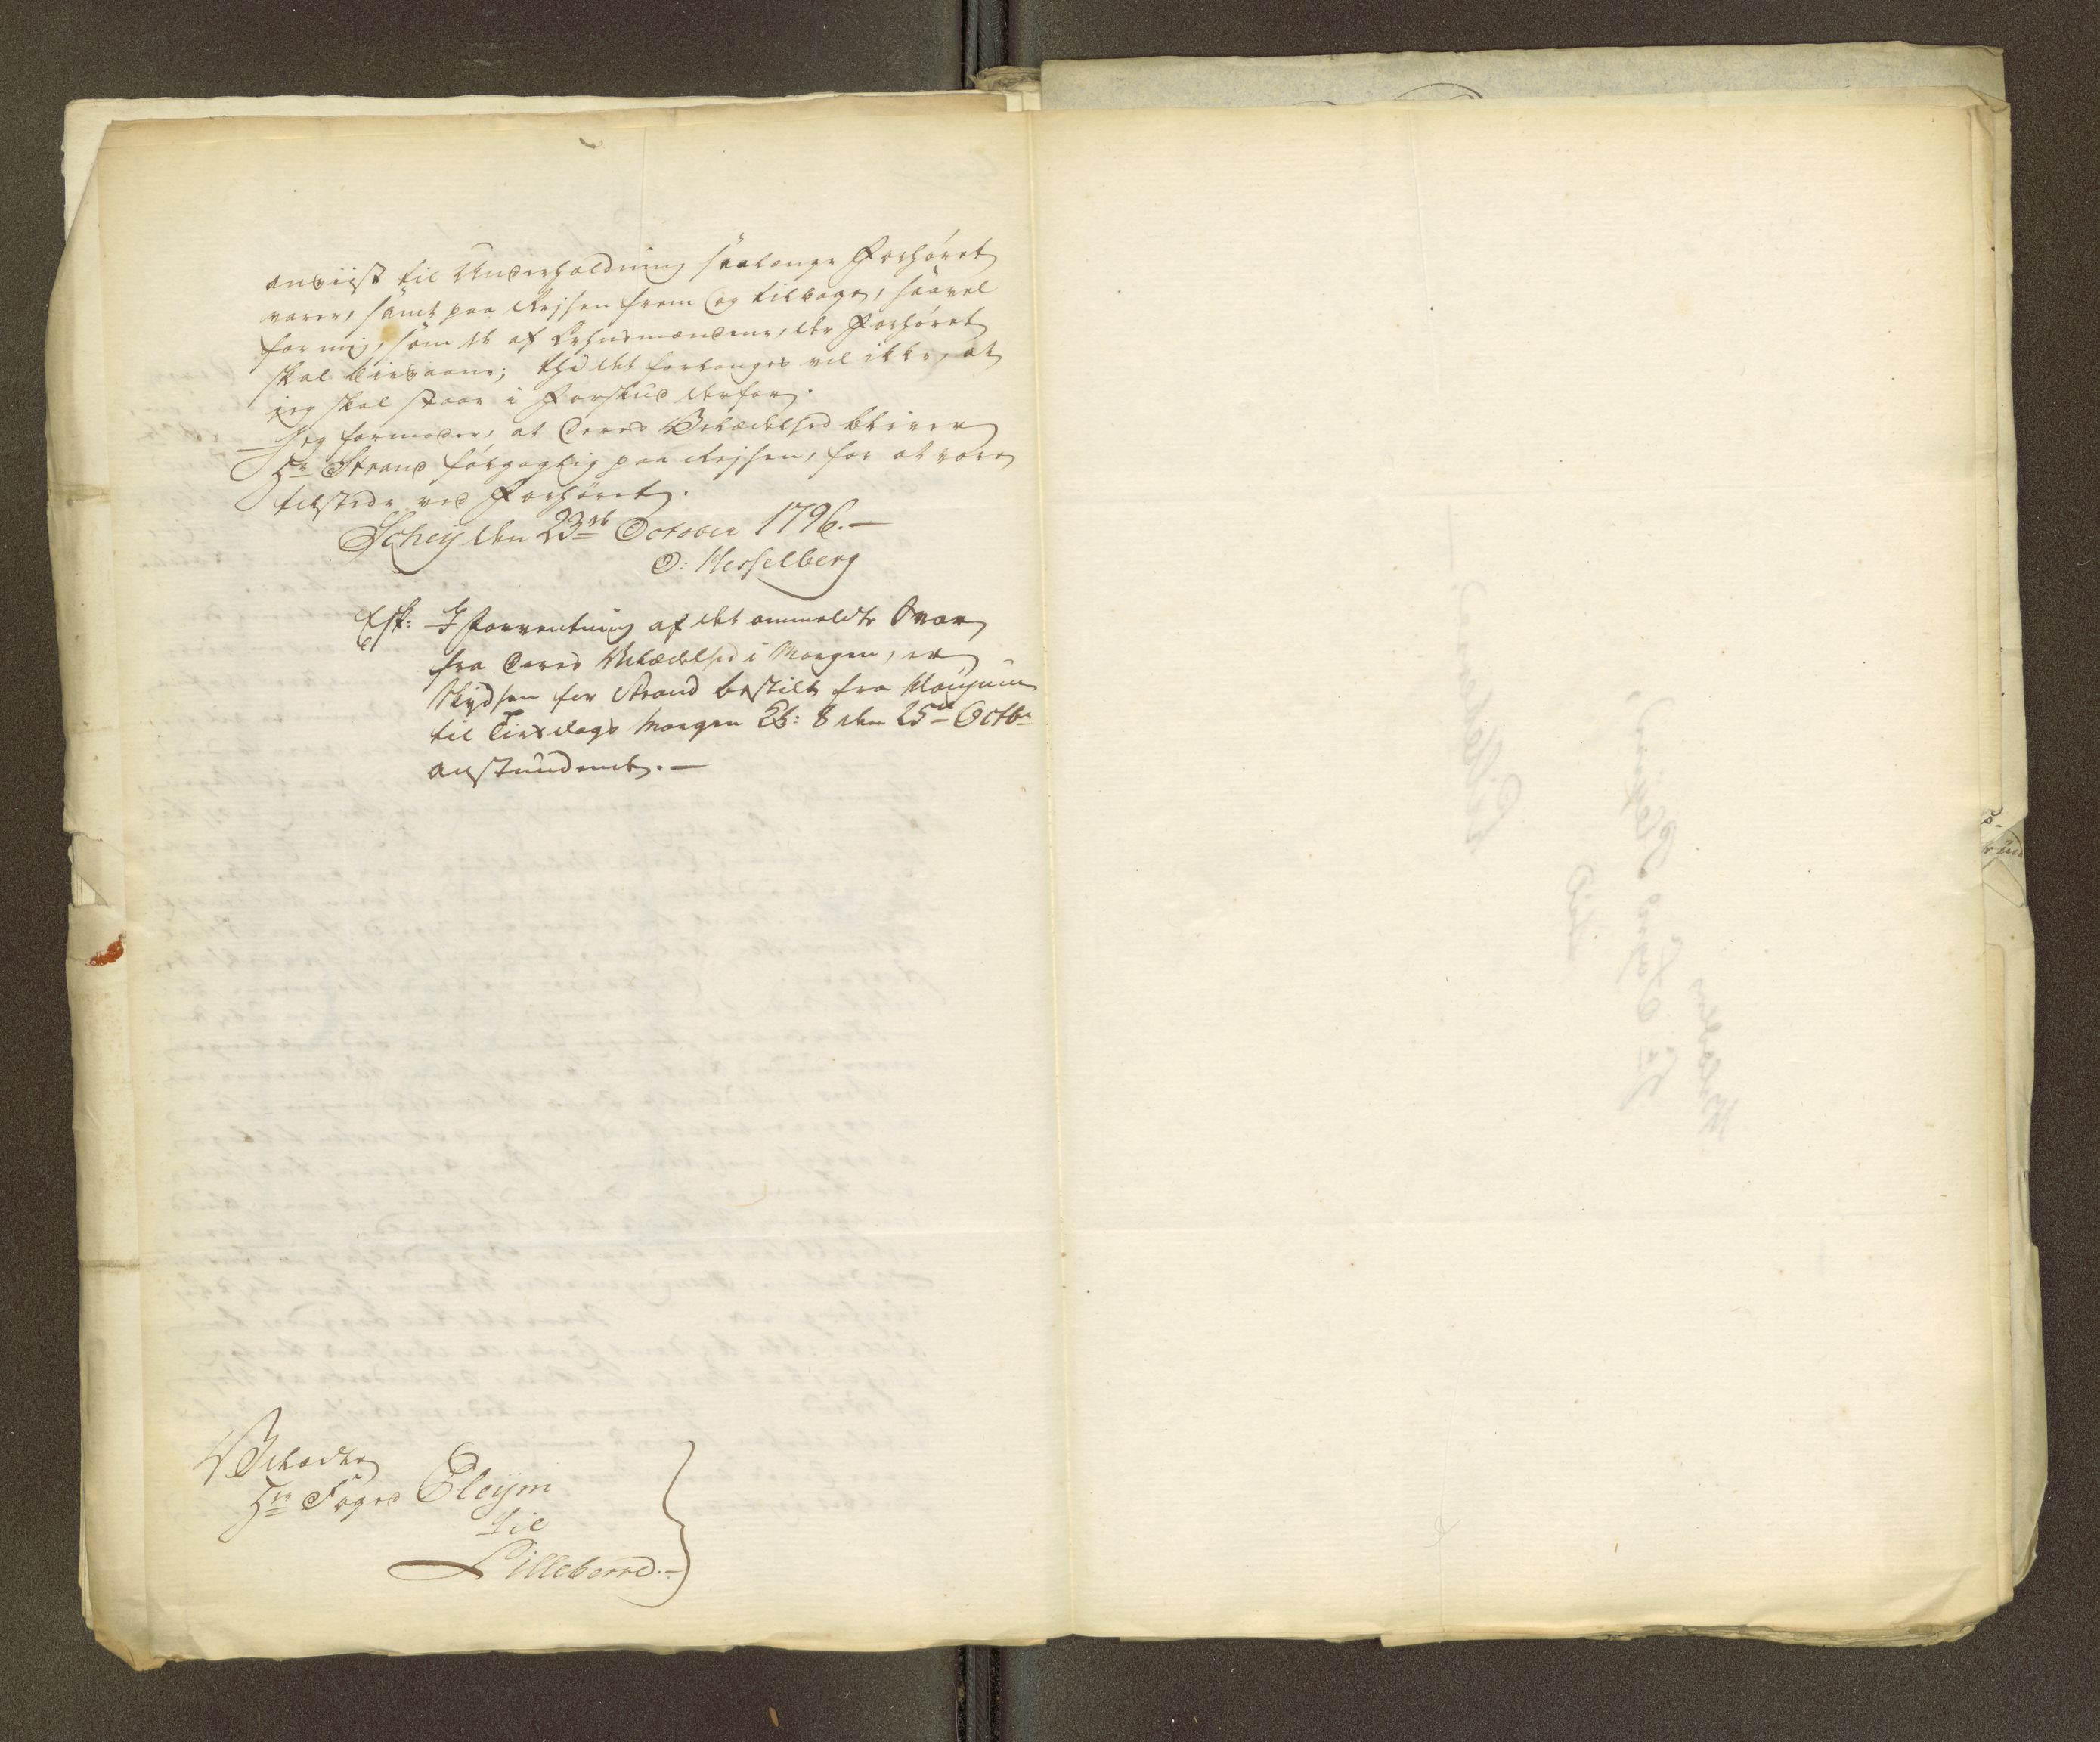 anviist til Underholdning saalænge Forhöret
varer, samt paa Rejsen frem og tilbage, saavel
for mig, som de af Lehnsmændene, der Forhöret
skal bievaane; thi det forlanges vel ikke, at
jeg skal staae i Forskud derfor.
Jeg formoder, at Deres Velædelhed bliver
Hr Strand fölgagtig paa Rejsen, for at være
tilstede ved Forhöret.
Scheij den 23de October 1796.—
O: Hesselberg
Esk: I Forventning af det ommeldte Svar
fra Deres Velædelhed i Morgen, er
Skydsen for Strand bestilt fra
til Tirsdags Morgen Kl: 8 den 25de Octbr
anstundende.—
Velædle
Hr Foged Eleijm
til
Lilleborre.—